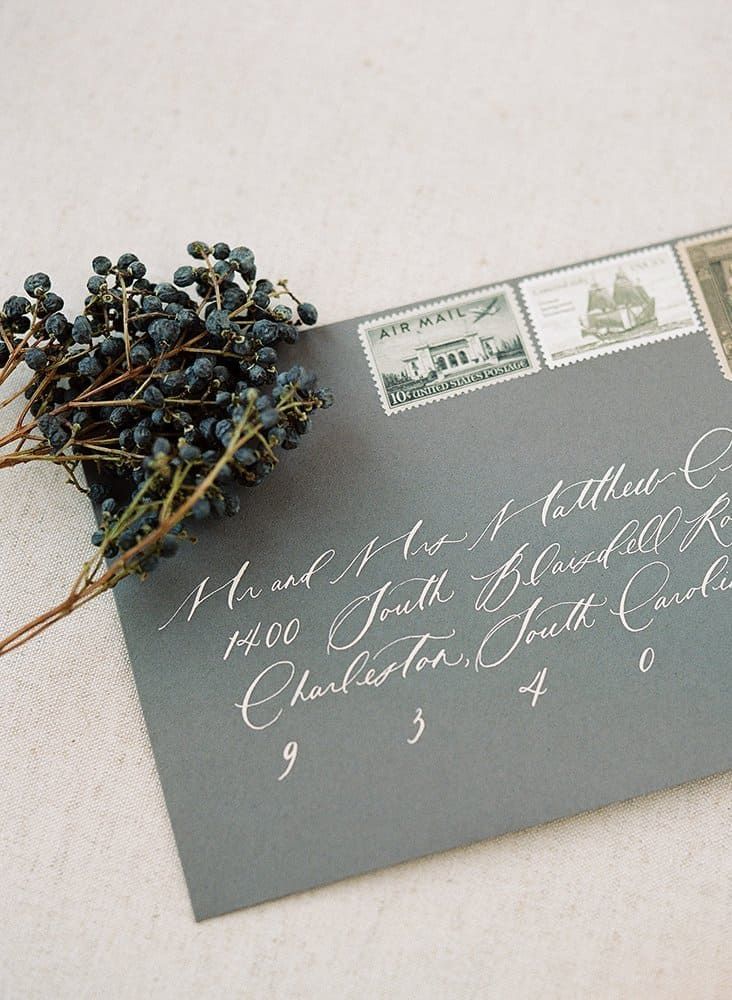 AIR MAIL
10¢ UNITED STATES POSTAGE
Mr and Mrs Matthew
1400 South Blaisdell
Charleston, South Carolin
9 3 4 0